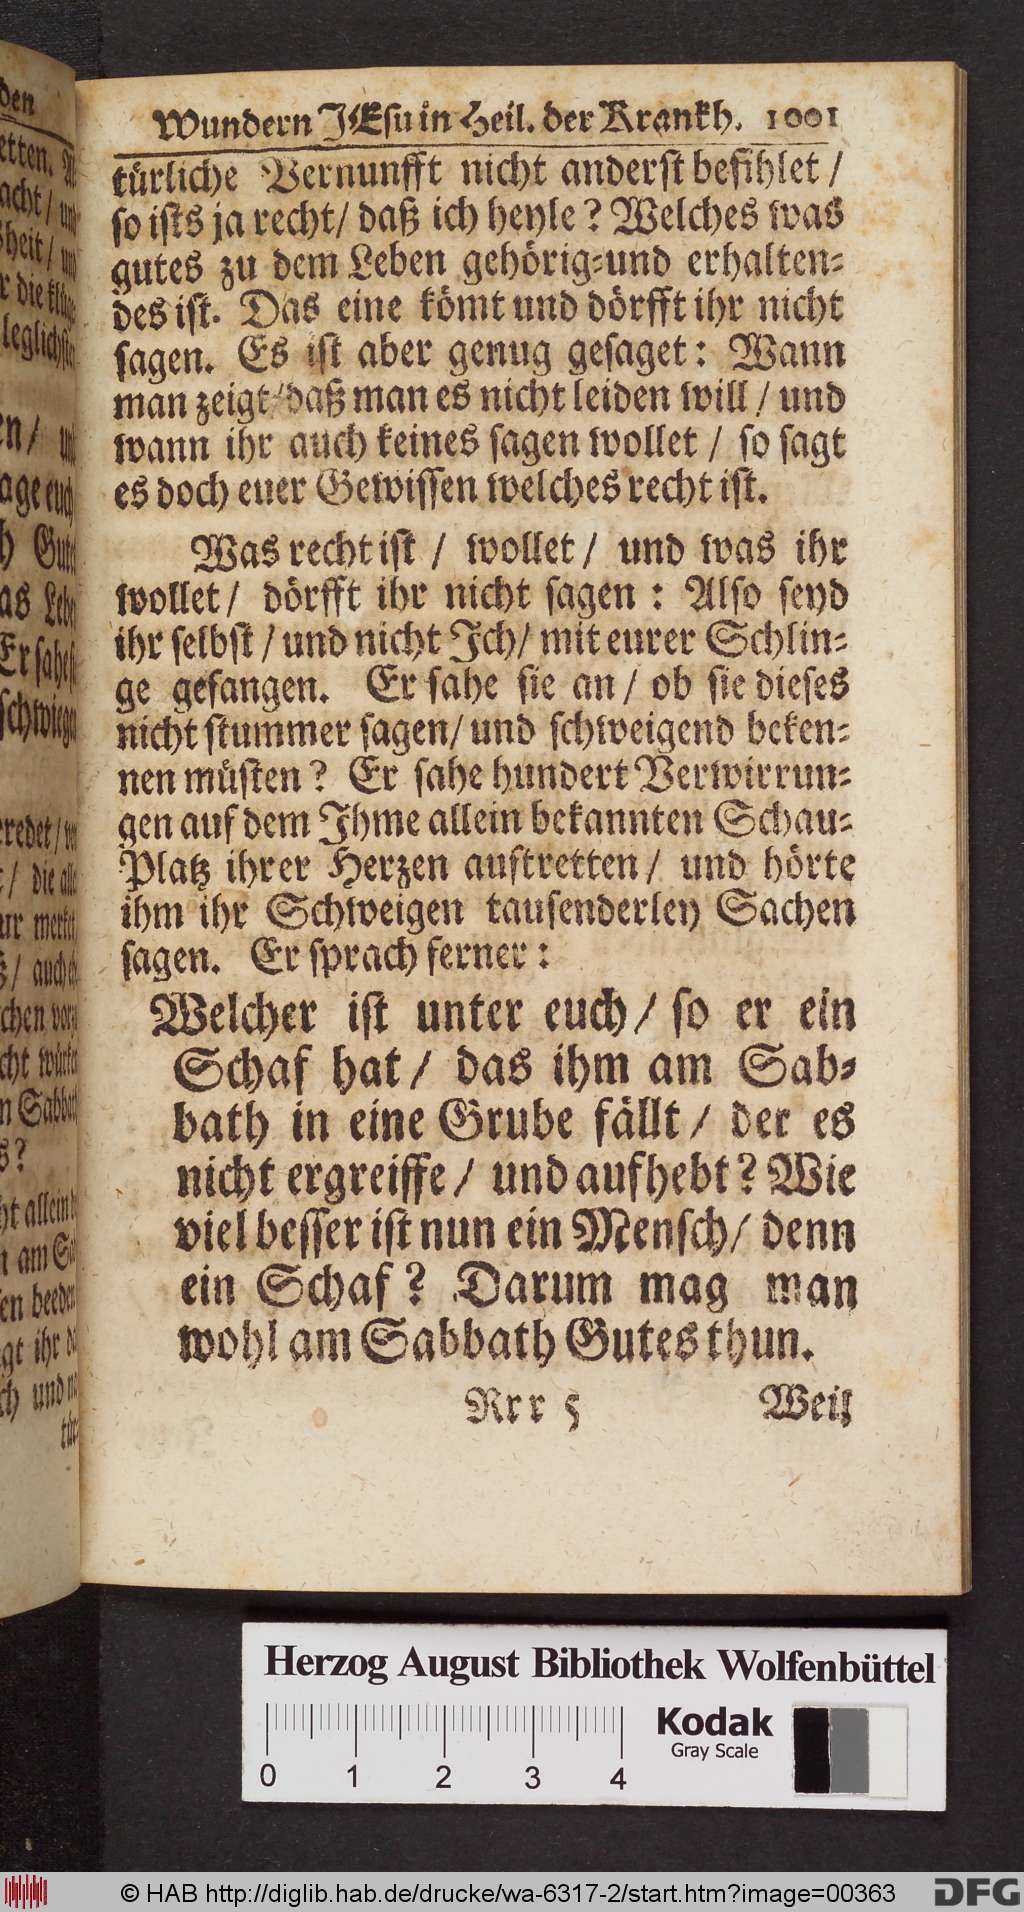 Wundern JEsu in Heil. der Krankh. 1001
türliche Vernunfft nicht anderst befihlet /
so ists ja recht / daß ich heyle? Welches was
gutes zu dem Leben gehörig-und erhalten-
des ist. Das eine kömt und dörfft ihr nicht
sagen. Es ist aber genug gesaget: Wann
man zeigt / daß man es nicht leiden will / und
wann ihr auch keines sagen wollet / so sagt
es doch euer Gewissen welches recht ist.
Was recht ist / wollet / und was ihr
wollet / dörfft ihr nicht sagen : Also seyd
ihr selbst / und nicht Jch / mit eurer Schlin-
ge gefangen. Er sahe sie an / ob sie dieses
nicht stummer sagen / und schweigend beken-
nen müsten? Er sahe hundert Verwirrun-
gen auf dem Jhme allein bekannten Schau-
Platz ihrer Herzen auftretten / und hörte
ihm ihr Schweigen tausenderley Sachen
sagen. Er sprach ferner :
Welcher ist unter euch / so er ein
Schaf hat / das ihm am Sab-
bath in eine Grube fällt / der es
nicht ergreiffe / und aufhebt? Wie
viel besser ist nun ein Mensch / denn
ein Schaf? Darum mag man
wohl am Sabbath Gutes thun.
Rrr 5 Weil
den
Herzog August Bibliothek Wolfenbüttel
0 1 2 3 4
Kodak
Gray Scale
© HAB http://diglib.hab.de/drucke/wa-6317-2/start.htm?image=00363
DFG